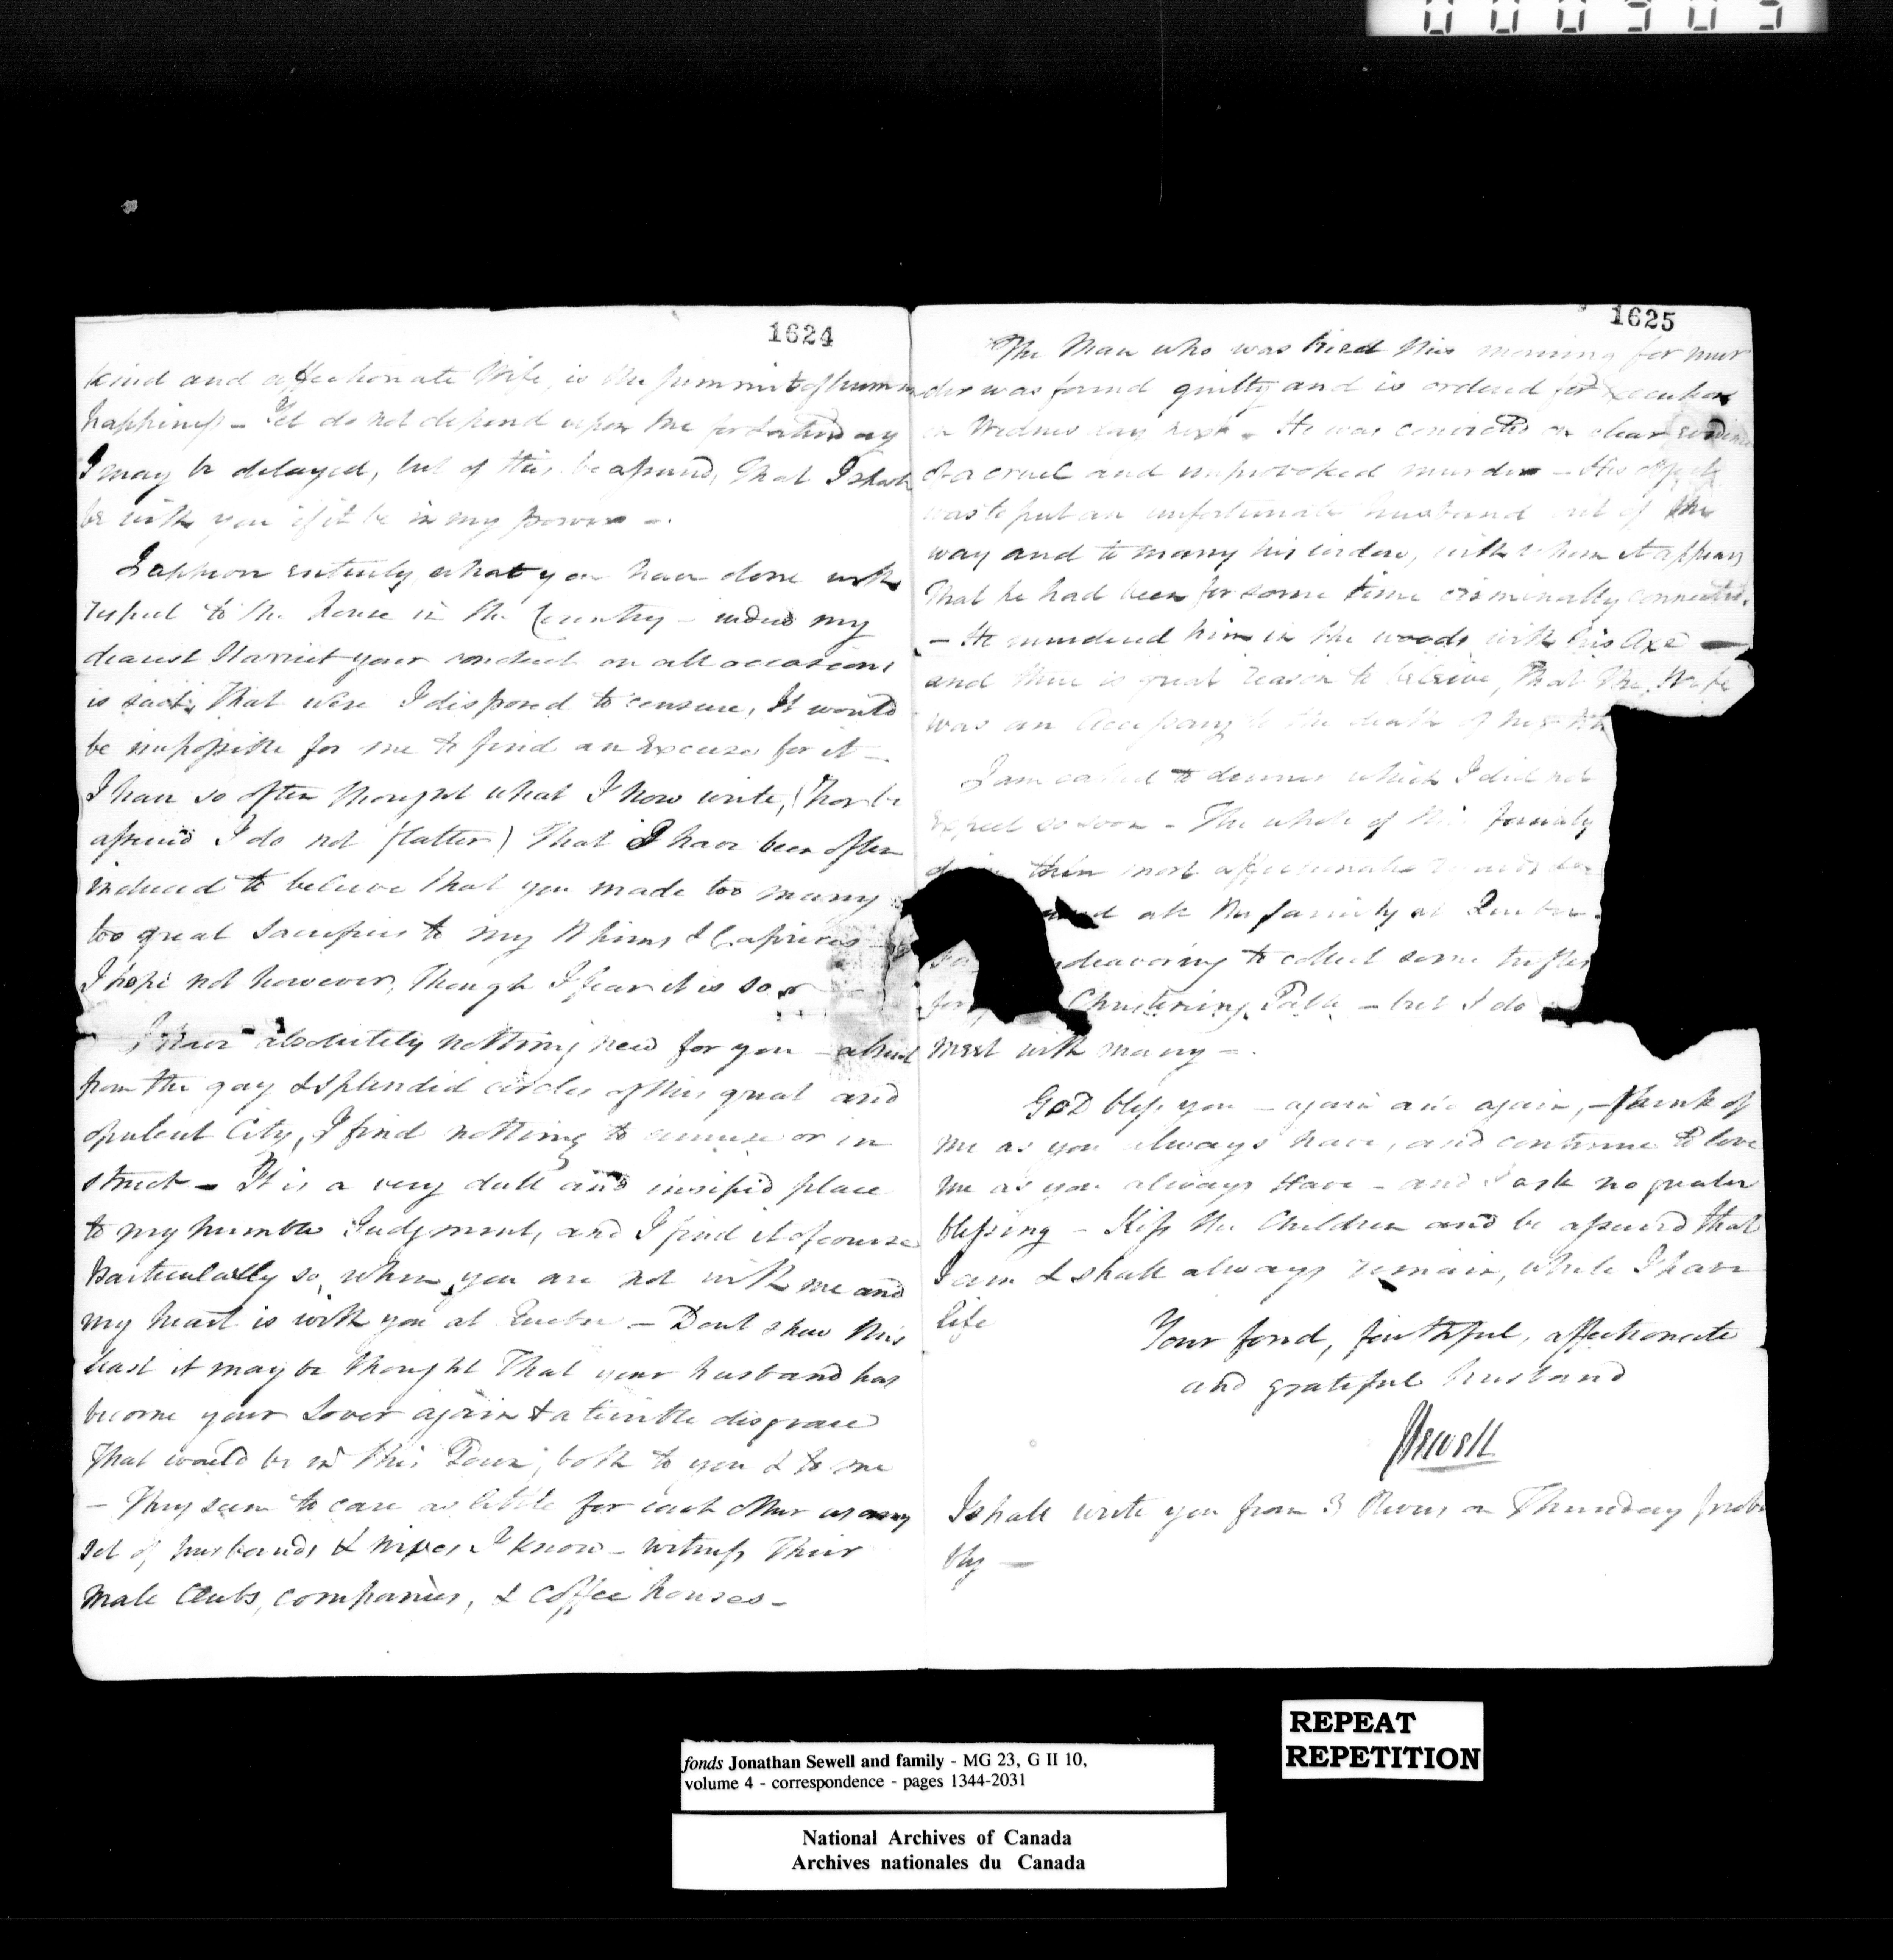 000505
1624
kind and affectionate Wife, is the summit of human
happiness - Yet do not depend upon me for Saturday
I may be delayed, but of this be assured, That I shall
be with you if it be in my power -.
I approve entirely what you have done with
respect to the house in the Country - indeed my
dearest Harriet your conduct on all occasions
is such, That were I disposed to censure, It would
be impossible for me to find an Excuse for it -
I have so often thought what I now write, (for be
assured I do not flatter) That I have been often
induced to believe that you made too many
too great Sacrifices to my Whims & Caprices -
I hope not however, Though I fear it is so -
I have absolutely nothing new for you - absent
from the gay & splendid circles of this great and
opulent City, I find nothing to amuse or in
struct - It is a very dull and insipid place
to my humble Judgment, and I find it of course
particularly so, when you are not with me and
my heart is with you at Quebec - Dont shew this
least it may be thought That your husband has
become your Lover again & a terrible disgrace
That would be in this Town, both to you & to me
- They seem to care as little for each other as any
set of husbands & wives I know - witness Their
Male Clubs, companies, & Coffee houses -
1625
The Man who was tried this morning for mur
der was found guilty and is ordered for Execution
on Wednesday next - He was convicted on clear evidence
of a cruel and unprovoked murder - His object
was to put an unfortunate husband out of the
way and to marry his widow, with whom it appears
That he had been for some time criminally connected.
- He murdered him in the woods with his Axe -
and there is great reason to believe, That the Wife
was an Accessary to the death of her
I am called to dinner which I did not
expect so soon - The whole of this family
their most affectionate regards
and all the family at Quebec -
endeavoring to collect some trifles
for Christening - but I do
meet with many -.
GOD bless you - again and again, - think of
me as you always have, and continue to love
me as you always Have - and I ask no greater
blessing - Kiss the Children and be assured that
I am & shall always remain, while I have
life
Your fond, faithful, affectionate
and grateful husband
JSewell
I shall write you from 3 Rivers on Thursday proba
bly -
REPEAT
REPETITION
fonds Jonathan Sewell and family - MG 23, G II 10,
volume 4 - correspondence - pages 1344-2031
National Archives of Canada
Archives nationales du Canada